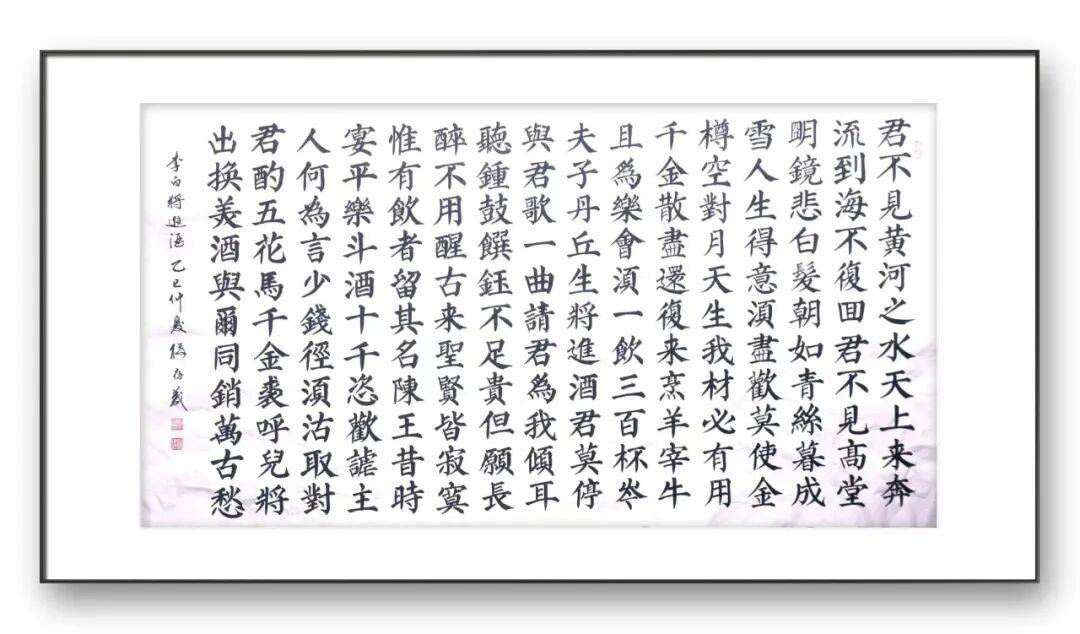 君不見黃河之水天上来奔
流到海不復囬君不見髙堂
明鏡悲白髮朝如青絲暮成
雪人生得意須盡歡莫使金
樽空對月天生我材必有用
千金散盡還復来烹羊宰牛
且為樂會須一飲三百杯岑
夫子丹丘生將進酒君莫停
與君歌一曲請君為我傾耳
聽鍾鼓饌鈺不足貴但願長
醉不用醒古来聖賢皆寂寞
惟有飲者留其名陳王昔時
宴平樂斗酒十千恣歡謔主
人何為言少錢徑須沽取對
君酌五花馬千金裘呼兒將
出換美酒與爾同銷萬古愁
李白將進酒 乙巳仲夏